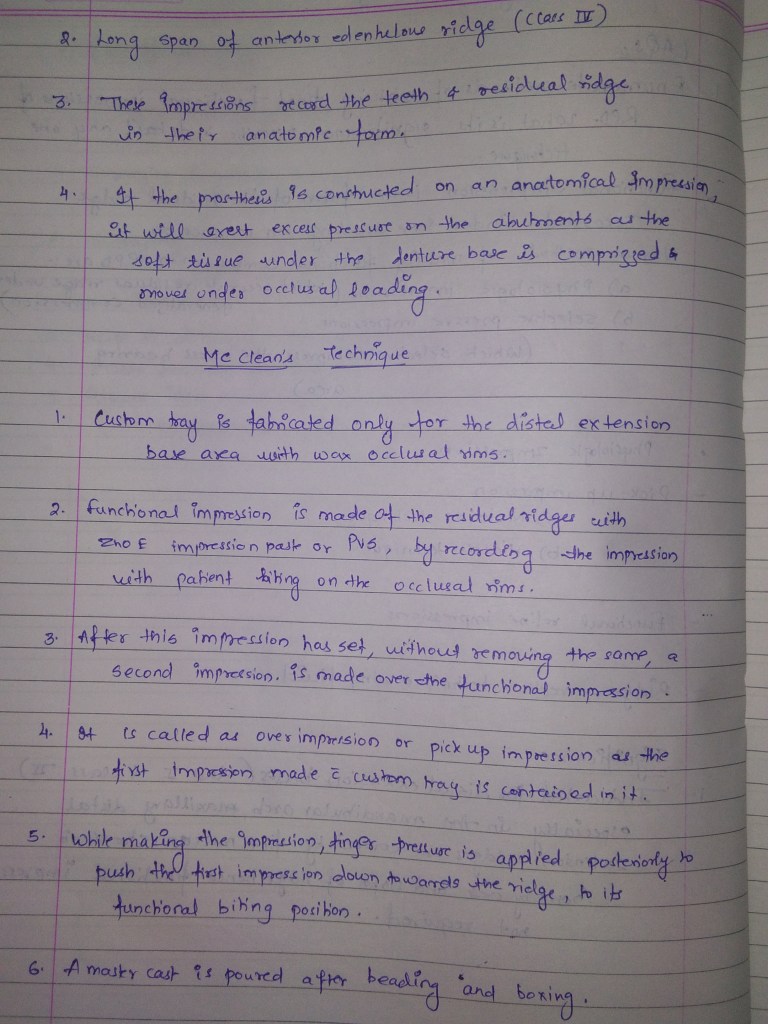 2. Long span of anterior edenhelous ridge (Class IV)
3. These Impressions record the teeth & residual ridge
in their anatomic form.
4. If the prosthesis is constructed on an anatomical Impression,
it will exert excess pressure on the abutments as the
soft tissue under the denture base is comprizzed &
moves under occlusal loading.
Mc clean's Technique
1. Custom tray is fabricated only for the distal extension
base area with wax occlusal rims.
2. functional impression is made of the residual ridges with
ZnO E impression paste or PVS, by recording the impression
with patient biting on the occlusal rims.
3. After this impression has set, without removing the same, a
second impression. is made over the functional impression.
4. It is called as over impression or pick up impression as the
first Impression made c̄ custom tray is contained in it.
5. While making the impression, finger pressure is applied posteriorly to
push the first impression down towards the ridge, to its
functional biting position.
6. A master cast is poured after beading and boxing.